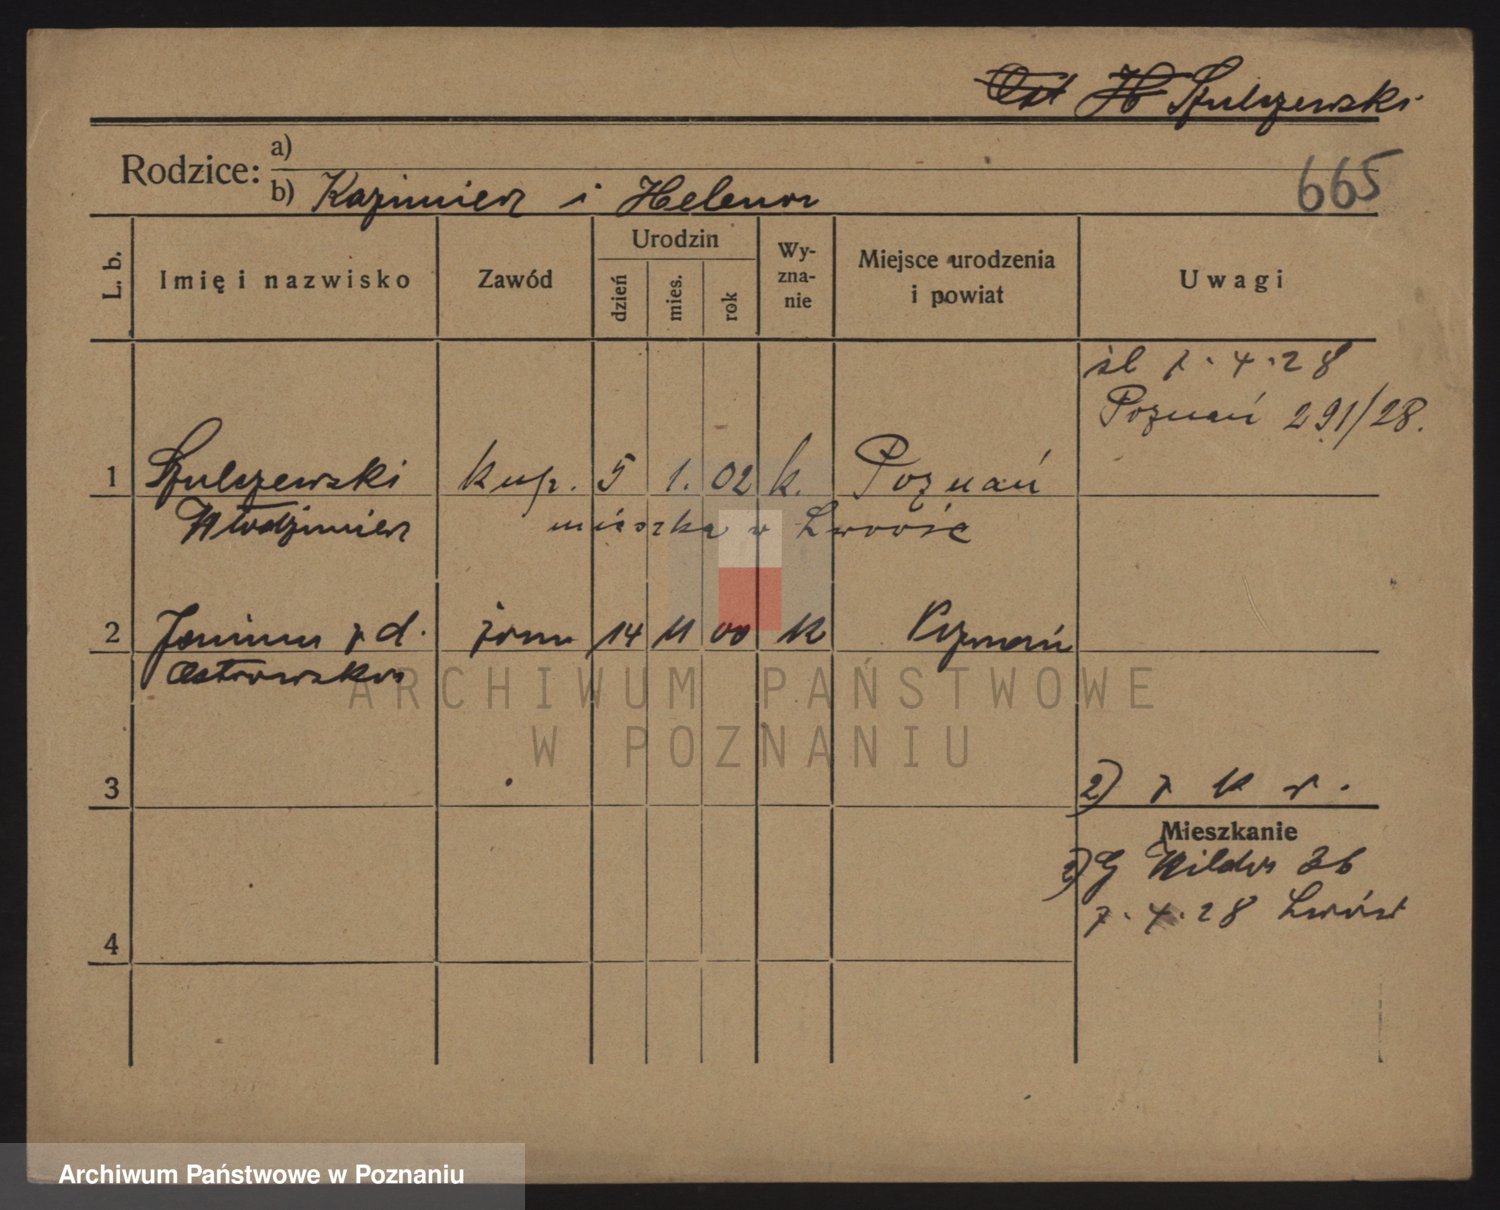 Szulczewski
Rodzice: a)
b) Kazimierz i Helena
665
L. b.
Imię i nazwisko
Zawód
Urodzin
dzień
mies.
rok
Wy-
zna-
nie
Miejsce urodzenia
i powiat
Uwagi
śl 7.4.28
Poznań 291/28.
1 Szulczewski kup. 5 1. 02 k. Poznań
Włodzimierz mieszka w Lwowie
2 Janina z d. żona 14 11 00 k Poznań
Ostrowska
ARCHIWUM PAŃSTWOWE
W POZNANIU
3
2) z k r.
Mieszkanie
2) G Wilda 36
7.4.28 Lwów
4
Archiwum Państwowe w Poznaniu